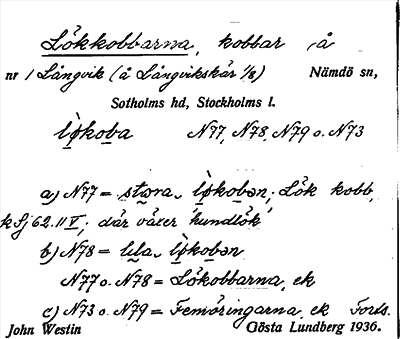 Lökkobbarna, kobbar å
nr 1 Långvik (å Långvikskär 1/8) Nämdö sn,
Sotholms hd, Stockholms l.
lø̀koba N77, N78, N79 o. N73
a) N77 = stora lø̀kobən; Lök kobb,
k Sj 62.11 V; där växer 'hundlök'
b) N78 = lila lø̀kobən
N77 o. N78 = Lökobbarna, ek
c) N73 o. N79 = Femöringarna, ek Forts.
John Westin Gösta Lundberg 1936.